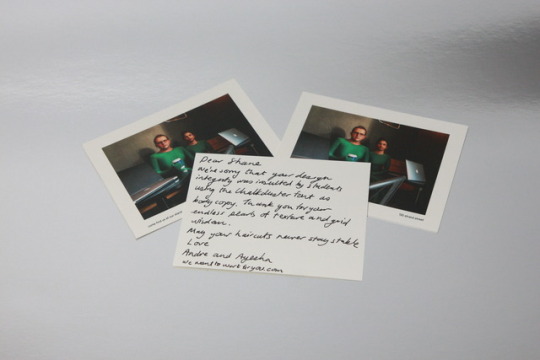 Dear Shane
We're sorry that your design
integrity was insulted by students
using the Chalkduster font as
body copy. Thank you for your
endless pearls of and
wisdom.
May your haircuts never stay stable
Love
Andre and Ayeesha
we want to work for you.com